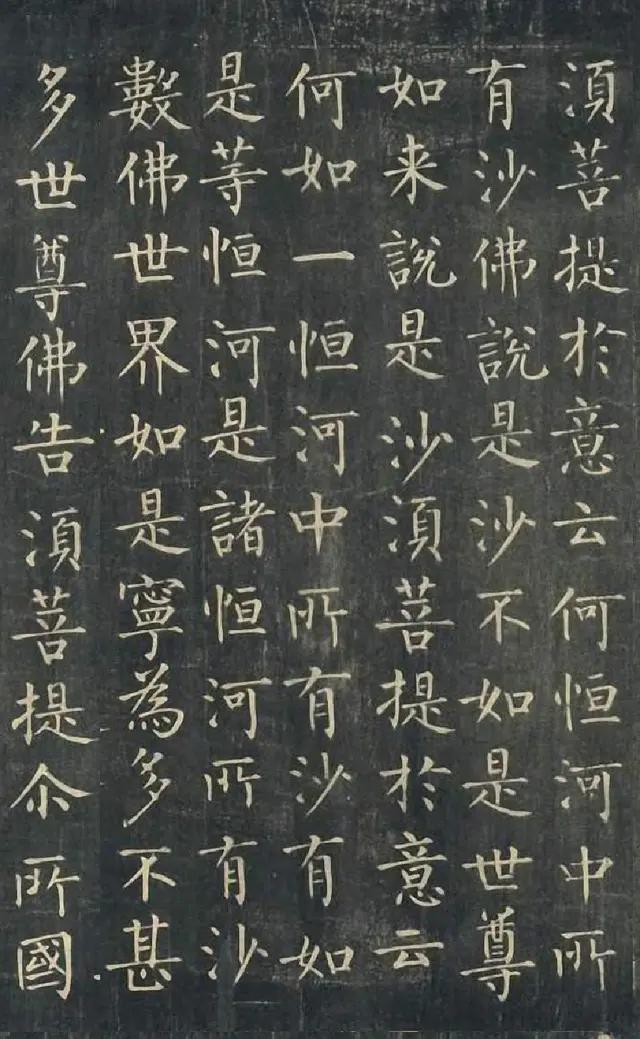 湏菩提於意云何恒河中所
有沙佛説是沙不如是世尊
如来説是沙湏菩提於意云
何如一恒河中所有沙有如
是等恒河是諸恒河所有沙
數佛世界如是寧為多不甚
多世尊佛告湏菩提尒所國